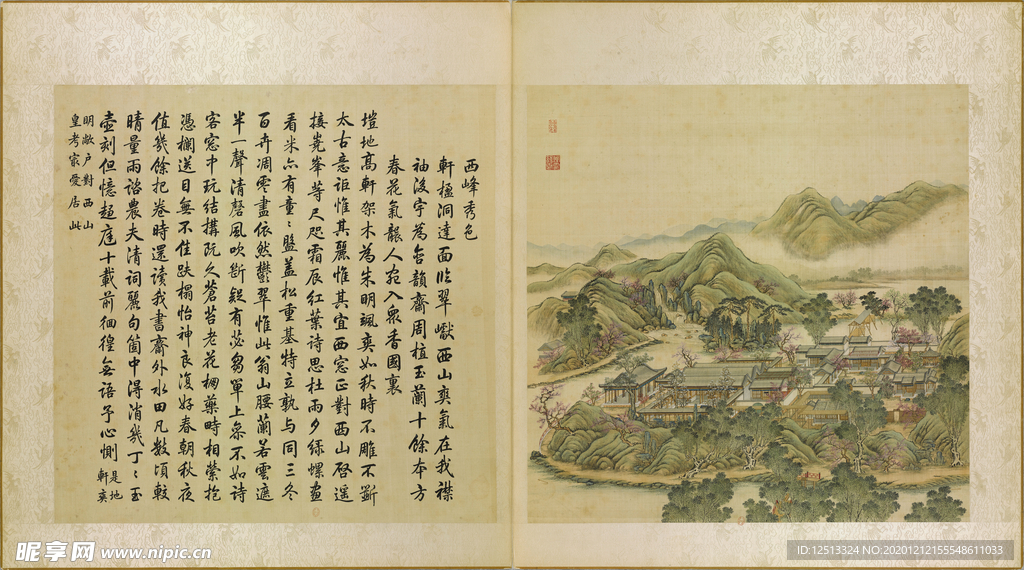 西峰秀色
軒楹洞達面臨翠巘西山爽氣在我襟
袖後宇為含韻齋周植玉蘭十餘本方
春花氣襲人宛入眾香國裏
塏地高軒架木為朱明颯爽如秋時不雕不斲
太古意詎惟其麗惟其宜西窓正對西山啓遙
接嶤峯等尺咫霜辰紅葉詩思杜雨夕綠螺畫
看米亦有童〻盤蓋松重基特立孰與同三冬
百卉凋零盡依然鬱翠惟此翁山腰蘭若雲遮
半一聲清磬風吹斷疑有苾芻單上參不如詩
客窓中玩結搆既久蒼苔老花欄藥時相縈抱
憑欄送目無不佳趺榻怡神良復好春朝秋夜
值幾餘把卷時還讀我書齋外水田凡數頃較
晴量雨諮農夫清詞麗句箇中得消幾丁〻玉
壺刻但憶趨庭十載前徊徨無語予心惻
是地
軒爽
明敞戶對西山
皇考冣愛居此
昵享网 www.nipic.cn
ID:12513324 NO:20201212155548611033